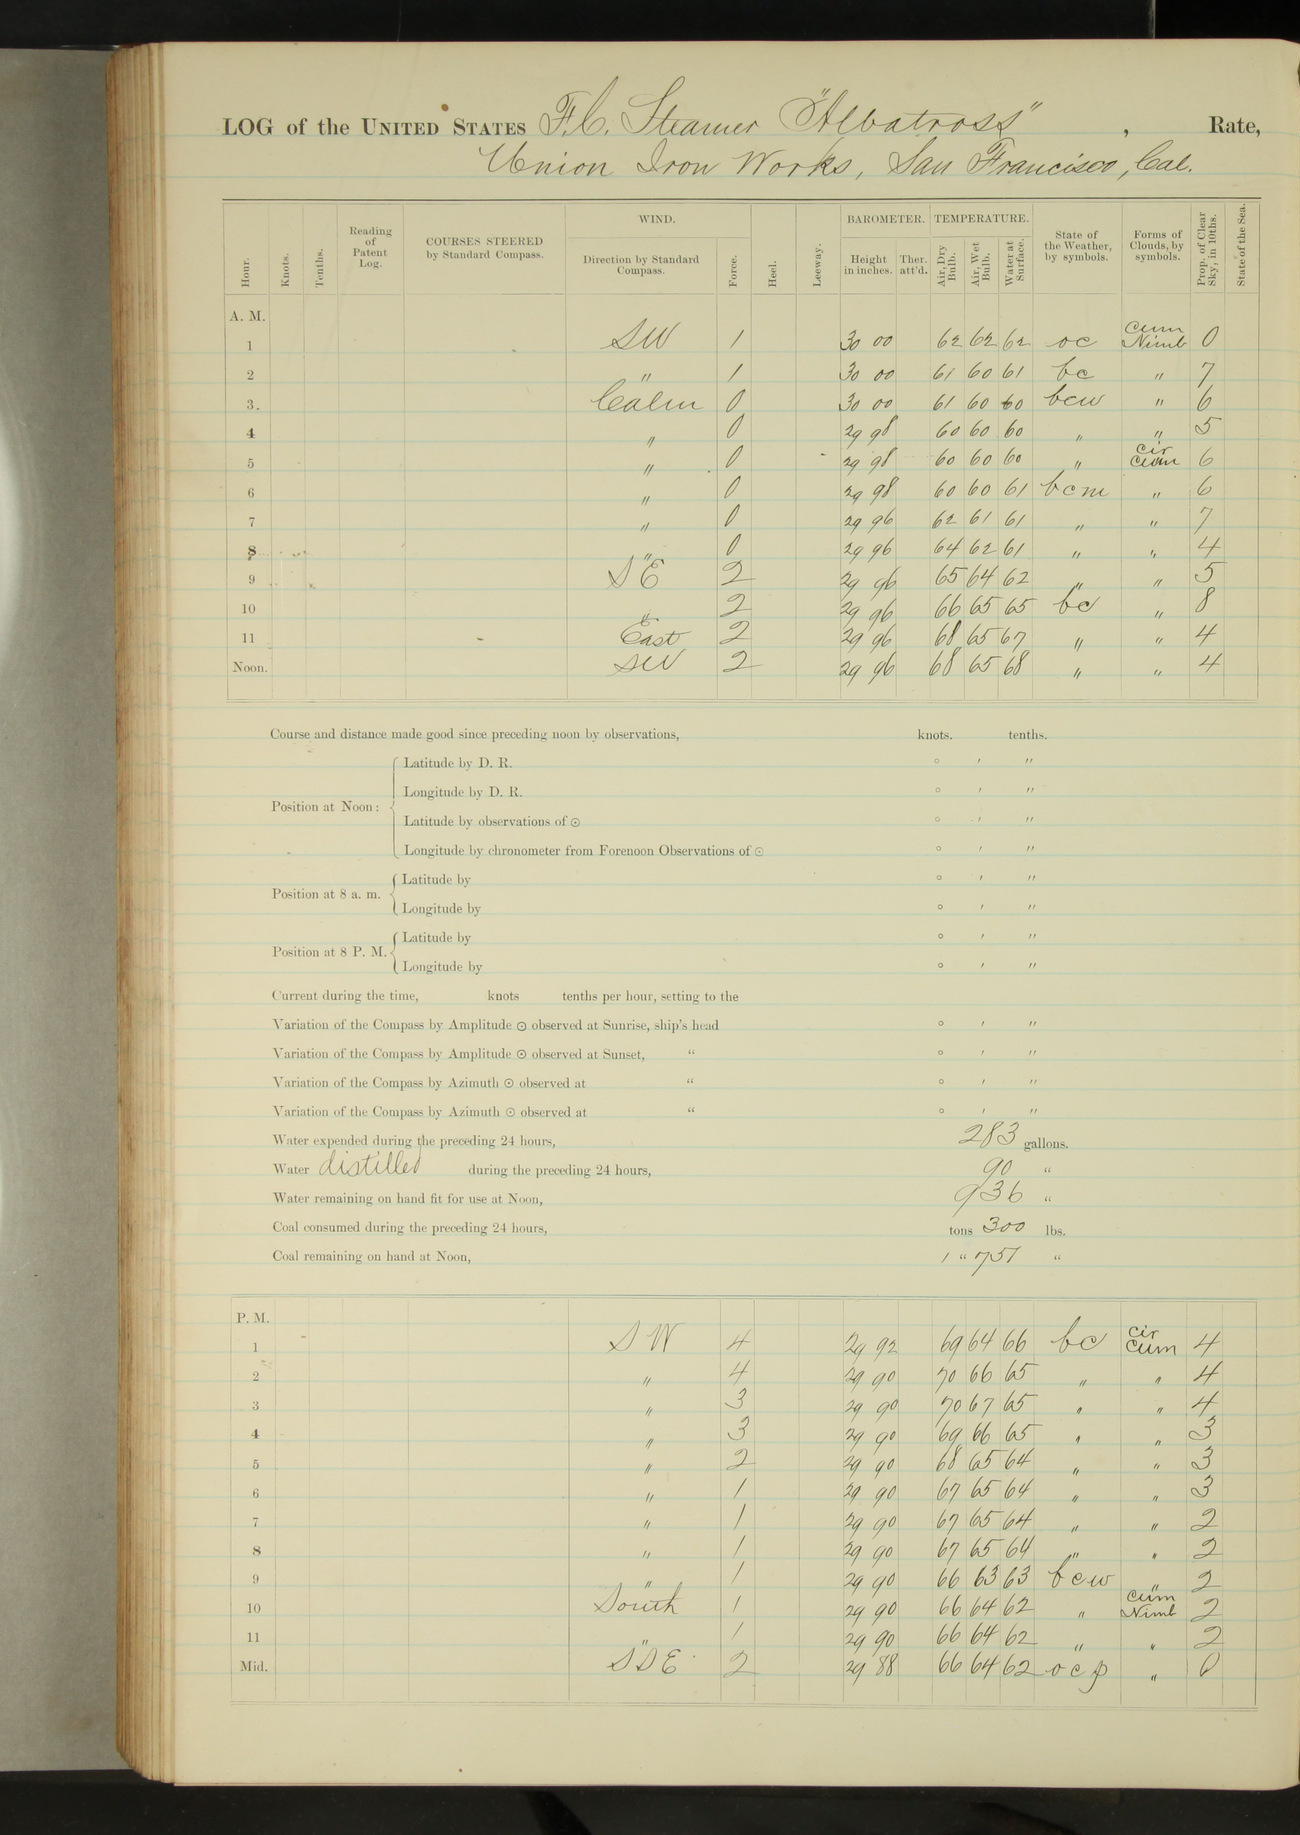 LOG of the UNITED STATES F.C. Steamer "Albatross", Rate,
Union Iron Works, San Francisco, Cal.
Hour. Knots. Tenths. Reading of Patent Log. COURSES STEERED by Standard Compass. WIND. Direction by Standard Compass. Force. Heel. Leeway. BAROMETER. Height in inches. Ther. att'd. TEMPERATURE. Air, Dry Bulb. Air, Wet Bulb. Water at Surface. State of the Weather, by symbols. Forms of Clouds, by symbols. Prop. of Clear Sky, in 10ths. State of the Sea.
A. M.
1 SW 1 30 00 62 62 62 oc Cum Nimb 0
2 " 1 30 00 61 60 61 bc " 7
3. Calm 0 30 00 61 60 60 bcw " 6
4 " 0 29 98 60 60 60 " " 5
5 " 0 29 98 60 60 60 " Cir Cum 6
6 " 0 29 98 60 60 61 bcm " 6
7 " 0 29 96 62 61 61 " " 7
8 " 0 29 96 64 62 61 " " 4
9 SE 2 29 96 65 64 62 " " 5
10 " 2 29 96 66 65 65 bc " 8
11 East 2 29 96 68 65 67 " " 4
Noon. SW 2 29 96 68 65 68 " " 4
Course and distance made good since preceding noon by observations, knots. tenths.
Position at Noon: Latitude by D. R. ° ′ ″
Longitude by D. R. ° ′ ″
Latitude by observations of ☉ ° ′ ″
Longitude by chronometer from Forenoon Observations of ☉ ° ′ ″
Position at 8 a. m. Latitude by ° ′ ″
Longitude by ° ′ ″
Position at 8 P. M. Latitude by ° ′ ″
Longitude by ° ′ ″
Current during the time, knots tenths per hour, setting to the
Variation of the Compass by Amplitude ☉ observed at Sunrise, ship's head ° ′ ″
Variation of the Compass by Amplitude ☉ observed at Sunset, " ° ′ ″
Variation of the Compass by Azimuth ☉ observed at " ° ′ ″
Variation of the Compass by Azimuth ☉ observed at " ° ′ ″
Water expended during the preceding 24 hours, 283 gallons.
Water distilled during the preceding 24 hours, 90 "
Water remaining on hand fit for use at Noon, 936 "
Coal consumed during the preceding 24 hours, tons 300 lbs.
Coal remaining on hand at Noon, 1 " 751 "
P. M.
1 SW 4 29 92 69 64 66 bc Cir Cum 4
2 " 4 29 90 70 66 65 " " 4
3 " 3 29 90 70 67 65 " " 4
4 " 3 29 90 69 66 65 " " 3
5 " 2 29 90 68 65 64 " " 3
6 " 1 29 90 67 65 64 " " 3
7 " 1 29 90 67 65 64 " " 2
8 " 1 29 90 67 65 64 " " 2
9 " 1 29 90 66 63 63 bcw " 2
10 South 1 29 90 66 64 62 " Cum Nimb 2
11 " 1 29 90 66 64 62 " " 2
Mid. SSE 2 29 88 66 64 62 ocp " 0